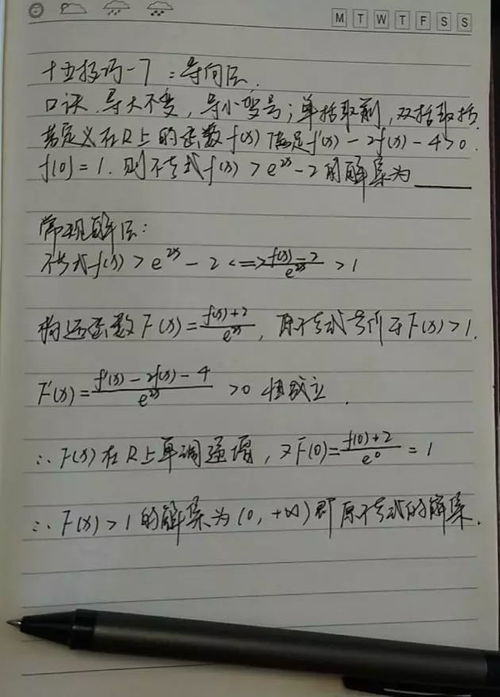 M T W T F S S
十五技巧-7：导向法.
口诀.导大不变，导小变号；单括取前，双括取括.
若定义在R上的函数f(x)满足f'(x)-2f(x)-4>0.
f(0)=1.则不等式f(x)>e^{2x}-2的解集为____
常规解法：
不等式f(x)>e^{2x}-2<=>\frac{f(x)-2}{e^{2x}}>1
构造函数F(x)=\frac{f(x)+2}{e^{2x}}，原不等式等价于F(x)>1.
F'(x)=\frac{f'(x)-2f(x)-4}{e^{2x}}>0 恒成立
∴F(x)在R上单调递增，又F(0)=\frac{f(0)+2}{e^0}=1
∴F(x)>1的解集为(0,+∞)即原不等式的解集.